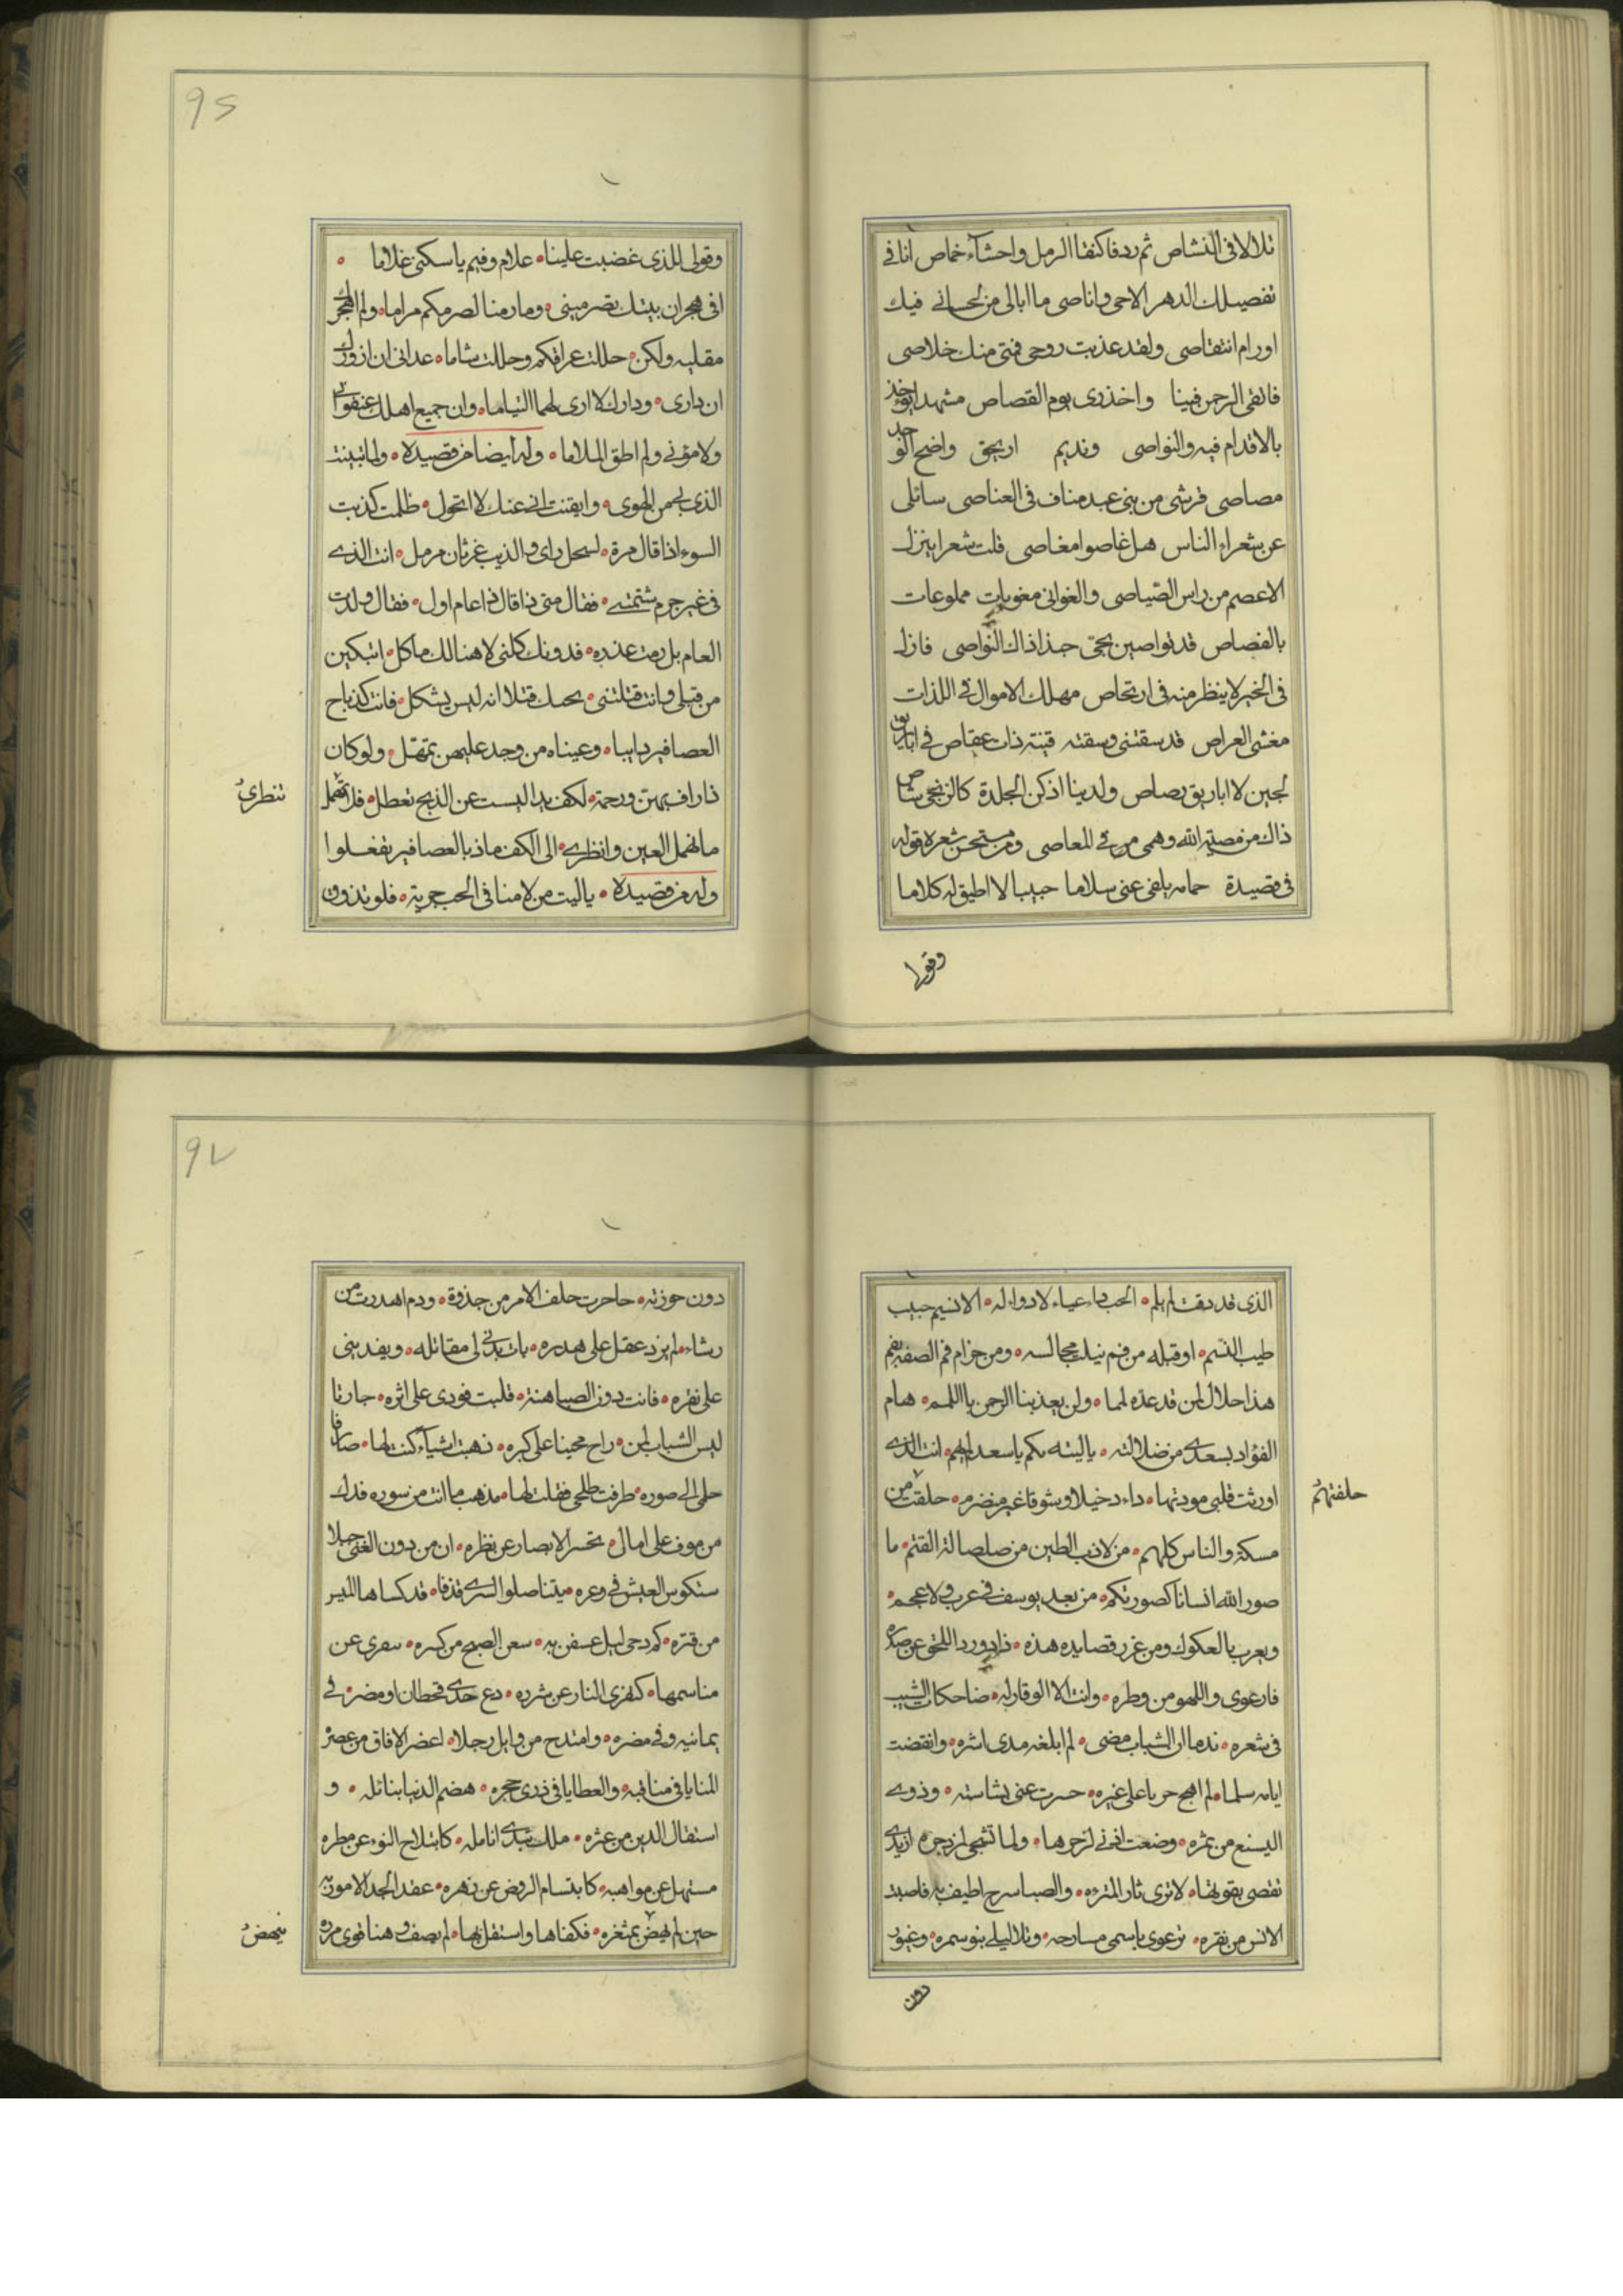 تلالا فى النشاص ثم ردفا كنقا الرمل واحشآء خماص انا فى
تفصيلك الدهر الاحى واناصى ما ابالى من لحانى فيك
اورام انتقاصى ولقد عذبت روحى فمتى منك خلاصى
فاتقى الرحمن فينا واحذرى يوم القصاص مشهد ايوخذ
بالاقدام فيه والنواصى ونديم اريحى واضح الوجد
مصاصى قرشى من بنى عبد مناف فى العناصى سائلى
عن شعراء الناس هل غاصوا مغاصى قلت شعرا ينزل
الاعصم من راس الصياصى والغوانى مغويات مملوعات
بالفصاص قد تواصين بحبى حبذا ذاك النواصى فازل
فى الخير لا ينظر منه فى ارتخاص مهلك الاموال فى اللذات
مغشى العراص قد سقتنى وسقته قينة ذات عقاص فى اباريق
لجين لا اباريق رصاص ولدينا اذكن الجلدة كالزنجى شاص
ذاك من مصيته الله وهمى من فى المعاصى ومن مستحسن شعره قوله
فى قصيدة حمامه بلغى عنى سلاما حبيبا لا اطيق له كلاما
وقولى
95
وقولى للذى غضبت علينا علام وفيم يا سكنى غلاما
افى هجران بيتك تصرمينى وما رمنا لصرمكم مراما ولم اهجرك
مقليه ولكن حللت عراقكم وحللت شاما عدانى ان ازورك
ان دارى ودارك لا ارى لهما التياما وان جميع اهلك عنفونى
ولامونى ولم اطق الملاما وله ايضا من قصيدة ولما تبينت
الذى بى من الهوى وايقنت انى عنك لا اتحول ظلمت كذيب
السوء اذا قال مرة لسخل راى والذيب غرثان مرمل انت الذى
فى غير جرم شتمتنى فقال متى ذا قال ذا عام اول فقال ولدت
العام بل رمت عذره فدونك كلنى لا هنالك ماكل اتبكين
من قتلى وانت قتلتنى بحبك قتلا انه ليس يشكل فانت كذباح
العصافير دايبا وعيناه من وجد عليهن تمهل ولو كان
ذا رافة بهن ورحمة لكف يدا ليست عن الذبح تعطل فلا تنظرى
تنظرى
ما تهمل العين وانظرى الى الكف ماذا بالعصافير تفعلوا
وله من قصيدة يا ليت من لامنا فى الحب جربه فلو تذوق
الذى قد ذقت لم يلم الحب داء عياء لا دواء له الا نسيم حبيب
طيب النسم او قبلة من فم نيلت مجالسه ومن حرام فم الصقه بفم
هذا حلال لمن قد عده لمما ولن يعذبنا الرحمن باللمم هام
الفؤاد بسعدى من ضلالته يا ليته بكم يا سعد لم يهم انت الذى
اورثت قلبى مودتها داء دخيلا وشوقا غير منصرم حلقت من
حلقتهم
مسكة والناس كلهم من لازب الطين من صلصالة القتم ما
صور الله انسانا كصورتكم من بعد يوسف فى عرب ولا عجم
ويعرب بالعكوك ومن غرر قصايده هذه ذاد ورد اللغى عن صدره
فارعوى واللهو من وطره وابت الا الوقار له ضاحكات الشيب
فى شعره ندما ان الشباب مضى لم ابلغه مدى اشره وانقضت
ايامه سلما لم اهج حربا على غيره حسرت عنى بشاشته وذوى
الينع من ثمره وضعت اذنى لزجرها ولما تشجى لمزدجره اذ يدى
تقصى بقوتها لا ترى ثار المتره والصبا سرح اطيف به فاصيد
الانس من نفره ترعوى باسمى مسارحه وتلا ليلى بنو سمره وغيور
دون
92
دون حوزته حاحرت حلف الامر من جذوة ودم اهدرت من
رشاء لم يزد عقل على هدره بات يدنى لى مقاتله ويفدينى
على نفره فانت دون الصبا هنة قلبت فودى على اثره جارتا
ليس الشباب لمن راح محينا على كبره ذهبت اشياء كنت لها صارفا
حلى الى صوره طرفت طلحى فقلت لها مذهب ما انت من سوره فدك
من موف على امال تحسر الابصار عن نظره ان من دون الغنى جبلا
ستكوس العيش فى وعره ميتنا صلوا السرى قذفا قد كساها الميس
من قتره كم دجى ليل عسفن به سعن الصبح من كسره سفرى عن
مناسمها كنفرى النار عن شرره دع جدى قحطان او مضر فى
يمانيه وفى مضره وامتدح من وايل رجلا اعصر الافاق من عصره
المنايا فى مناقبه والعطايا فى ذرى حجره هضم الدنيا بنائله و
استقال الدين من عثره ملك تندى انامله كانبلاج النوء عن مطره
مستهل عن مواهبه كابتسام الروض عن زهره عقد الجد الامور به
حين لم ينهض بمثغره فكفاها واستقل بها لم يصف وهنا قوى مرره
ينهض